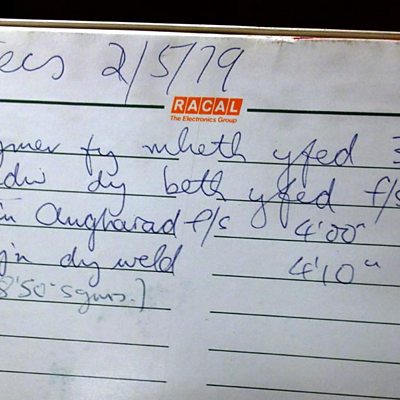 ecs 2/5/79
RACAL
The Electronics Group
fy mheth yfed 3
dy beth yfed f/s
Angharad f/s 4'00"
dy weld 4'10"
8'50"